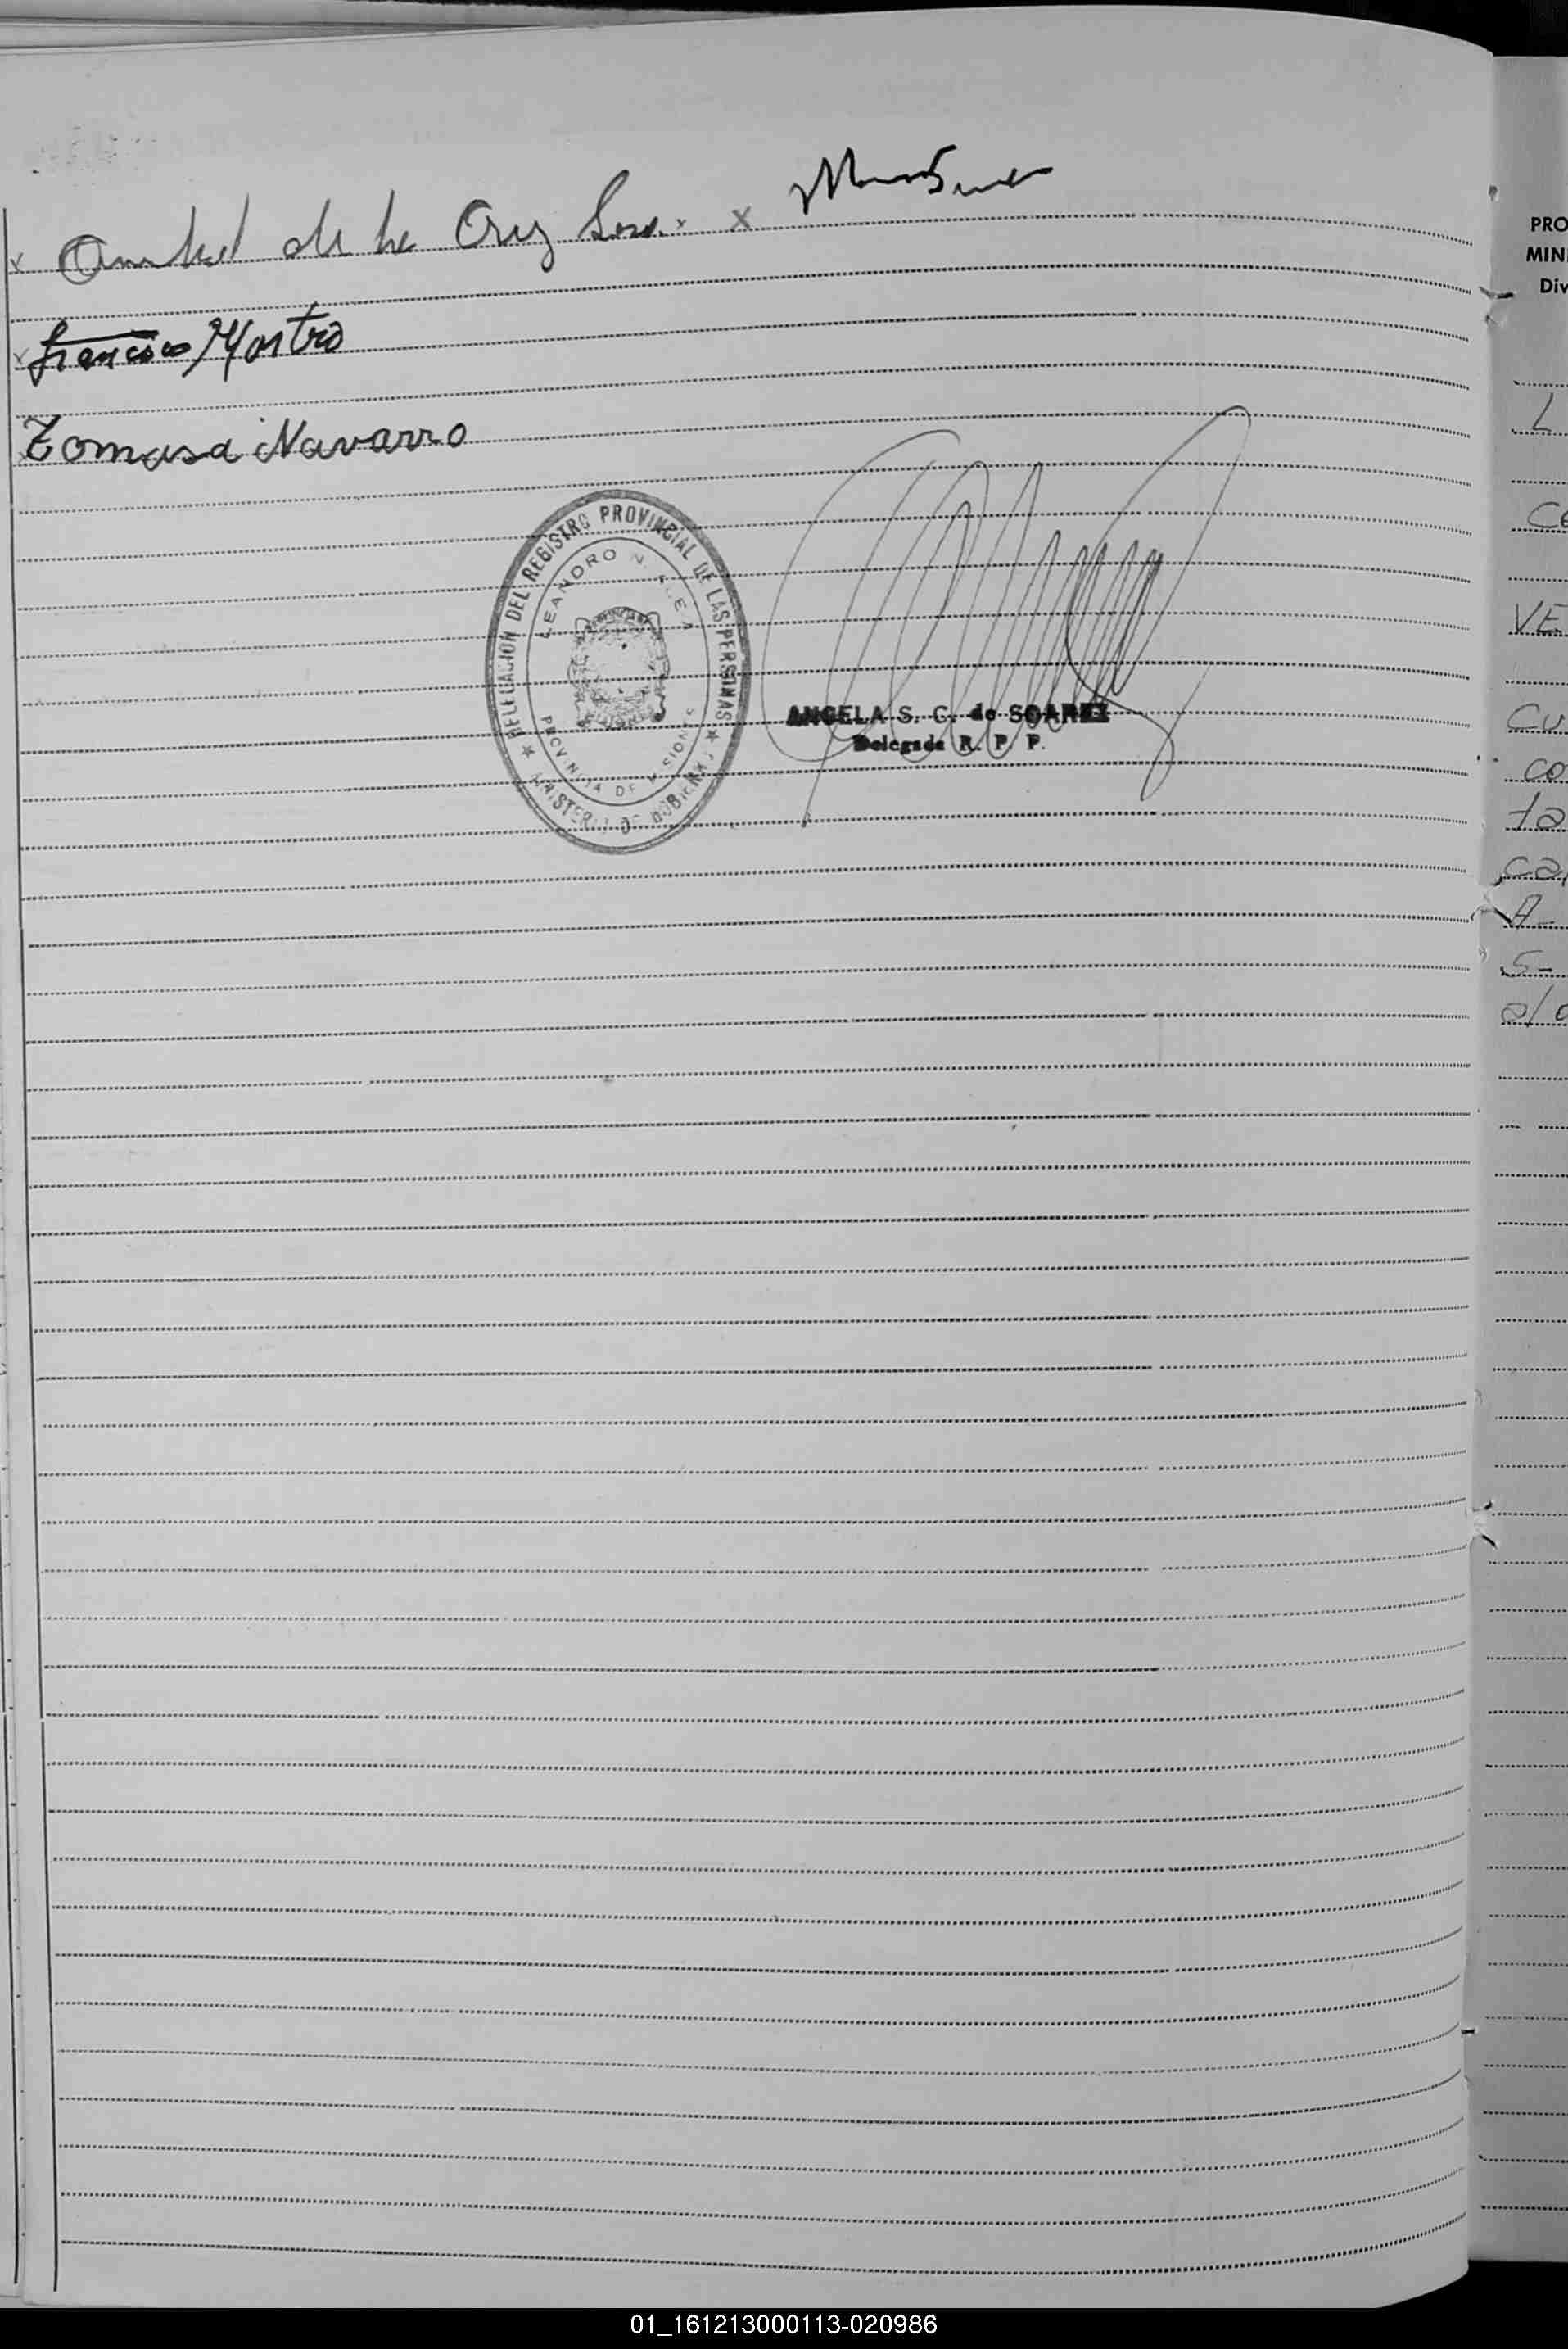 x de la Cruz x
x Francisco Mastro
Tomasa Navarro
DELEGACION DEL REGISTRO PROVINCIAL DE LAS PERSONAS
LEANDRO N. ALEM
PROVINCIA DE MISIONES
★ MINISTERIO DE GOBIERNO ★
ANGELA S. C. de SOAREZ
Delegada R. P. P.
PRO
MIN
Div
L
CE
VE
CU
co
ta
ca
A-
S-
01_161213000113-020986